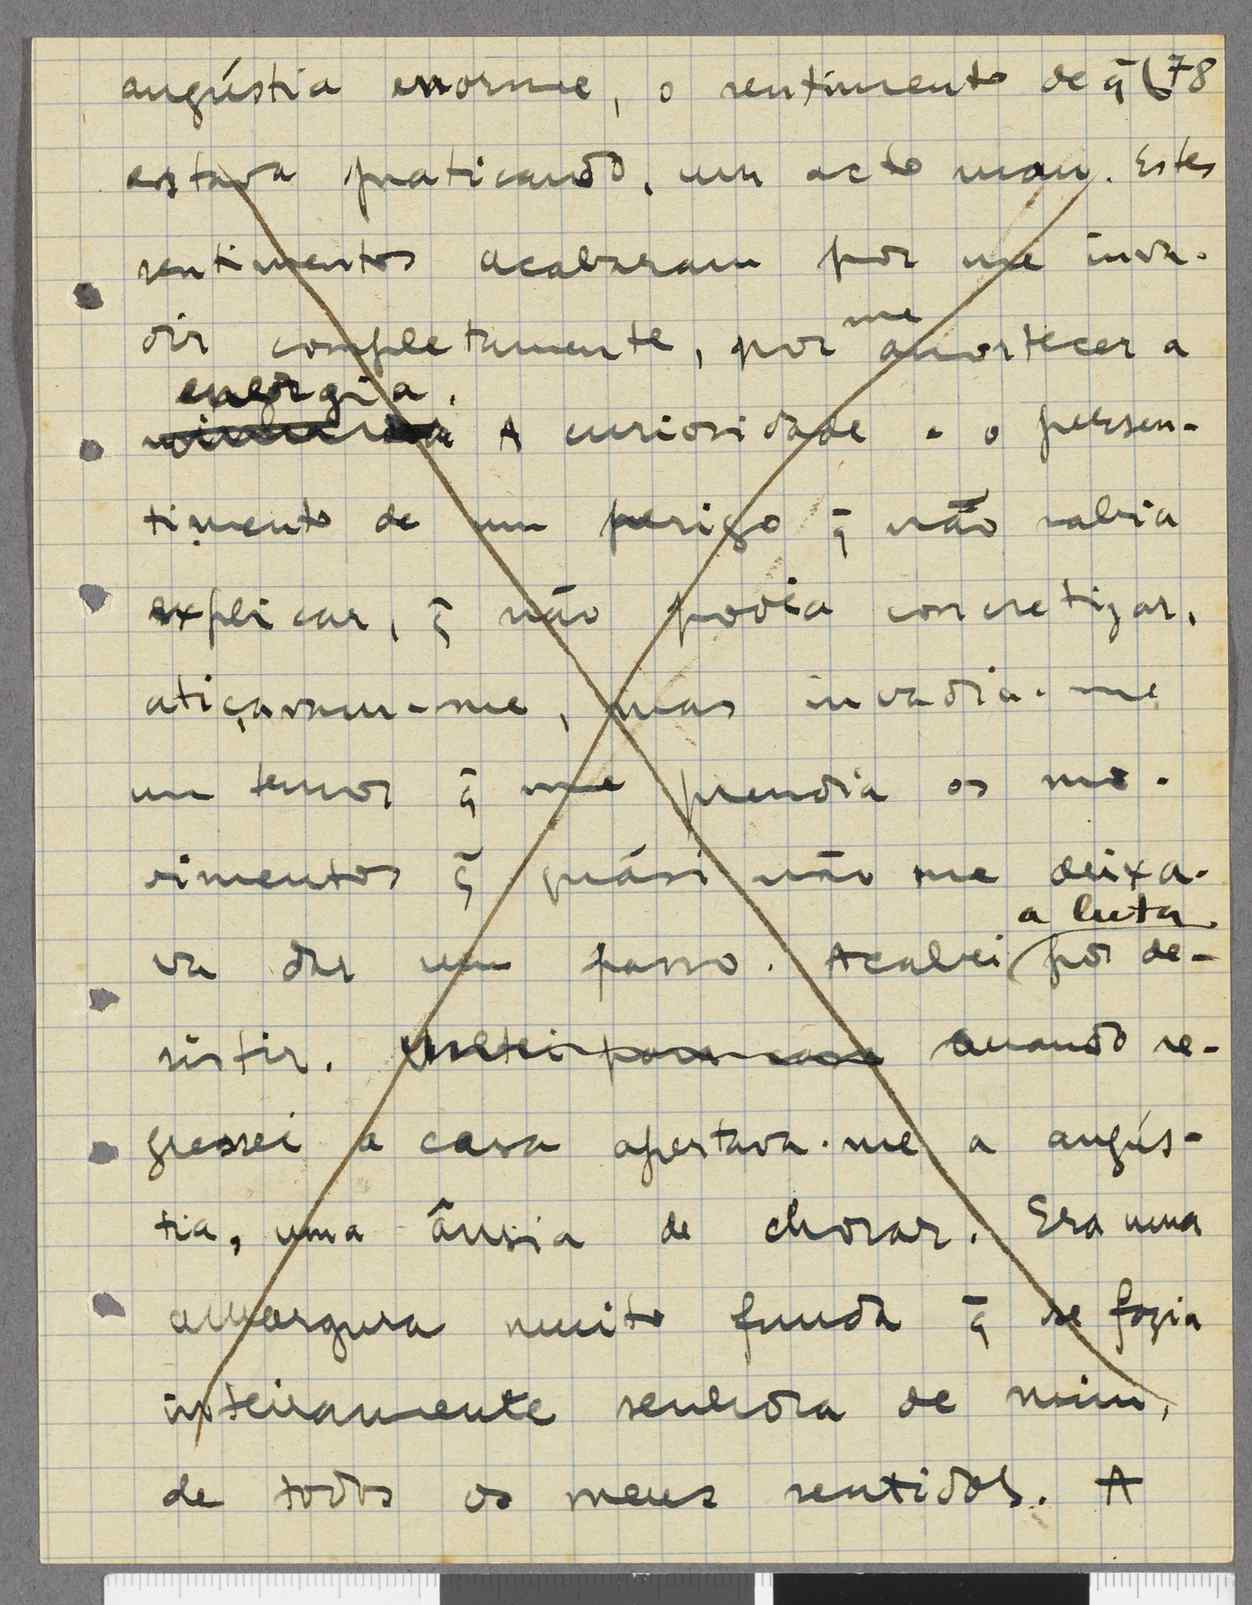 angústia enorme, o sentimento de q̃ 78
estava praticando, um acto mau. Estes
sentimentos acabaram por me inva-
dir completamente, por me amortecer a
energia.
A curiosidade e o pressen-
timento de um perigo q̃ não sabia
explicar, q̃ não podia concretizar,
atiçavam-me, mas invadia-me
um temor q̃ me prendia os mo-
vimentos q̃ quási não me deixa-
a luta
va dar um passo. Acabei por de-
sistir. Voltei para casa Quando re-
gressei a casa apertava-me a angús-
tia, uma ânsia de chorar. Era uma
amargura muito funda q̃ se fazia
inteiramente senhora de mim,
de todos os meus sentidos. A